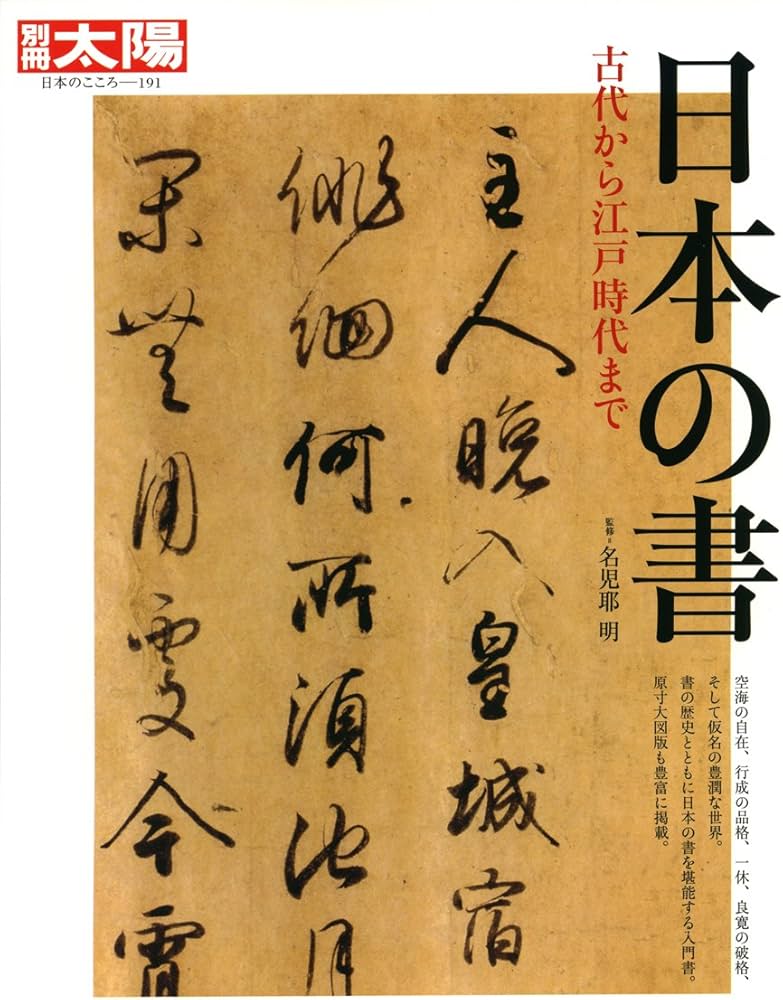 別冊
太陽
日本のこころ―191
日本の書
古代から江戸時代まで
監修=名児耶 明
空海の自在、行成の品格、一休、良寛の破格、
そして仮名の豊潤な世界。
書の歴史とともに日本の書を堪能する入門書。
原寸大図版も豊富に掲載。
主人晩入皇城宿
俳佪何所須池月
閑無用處今宵